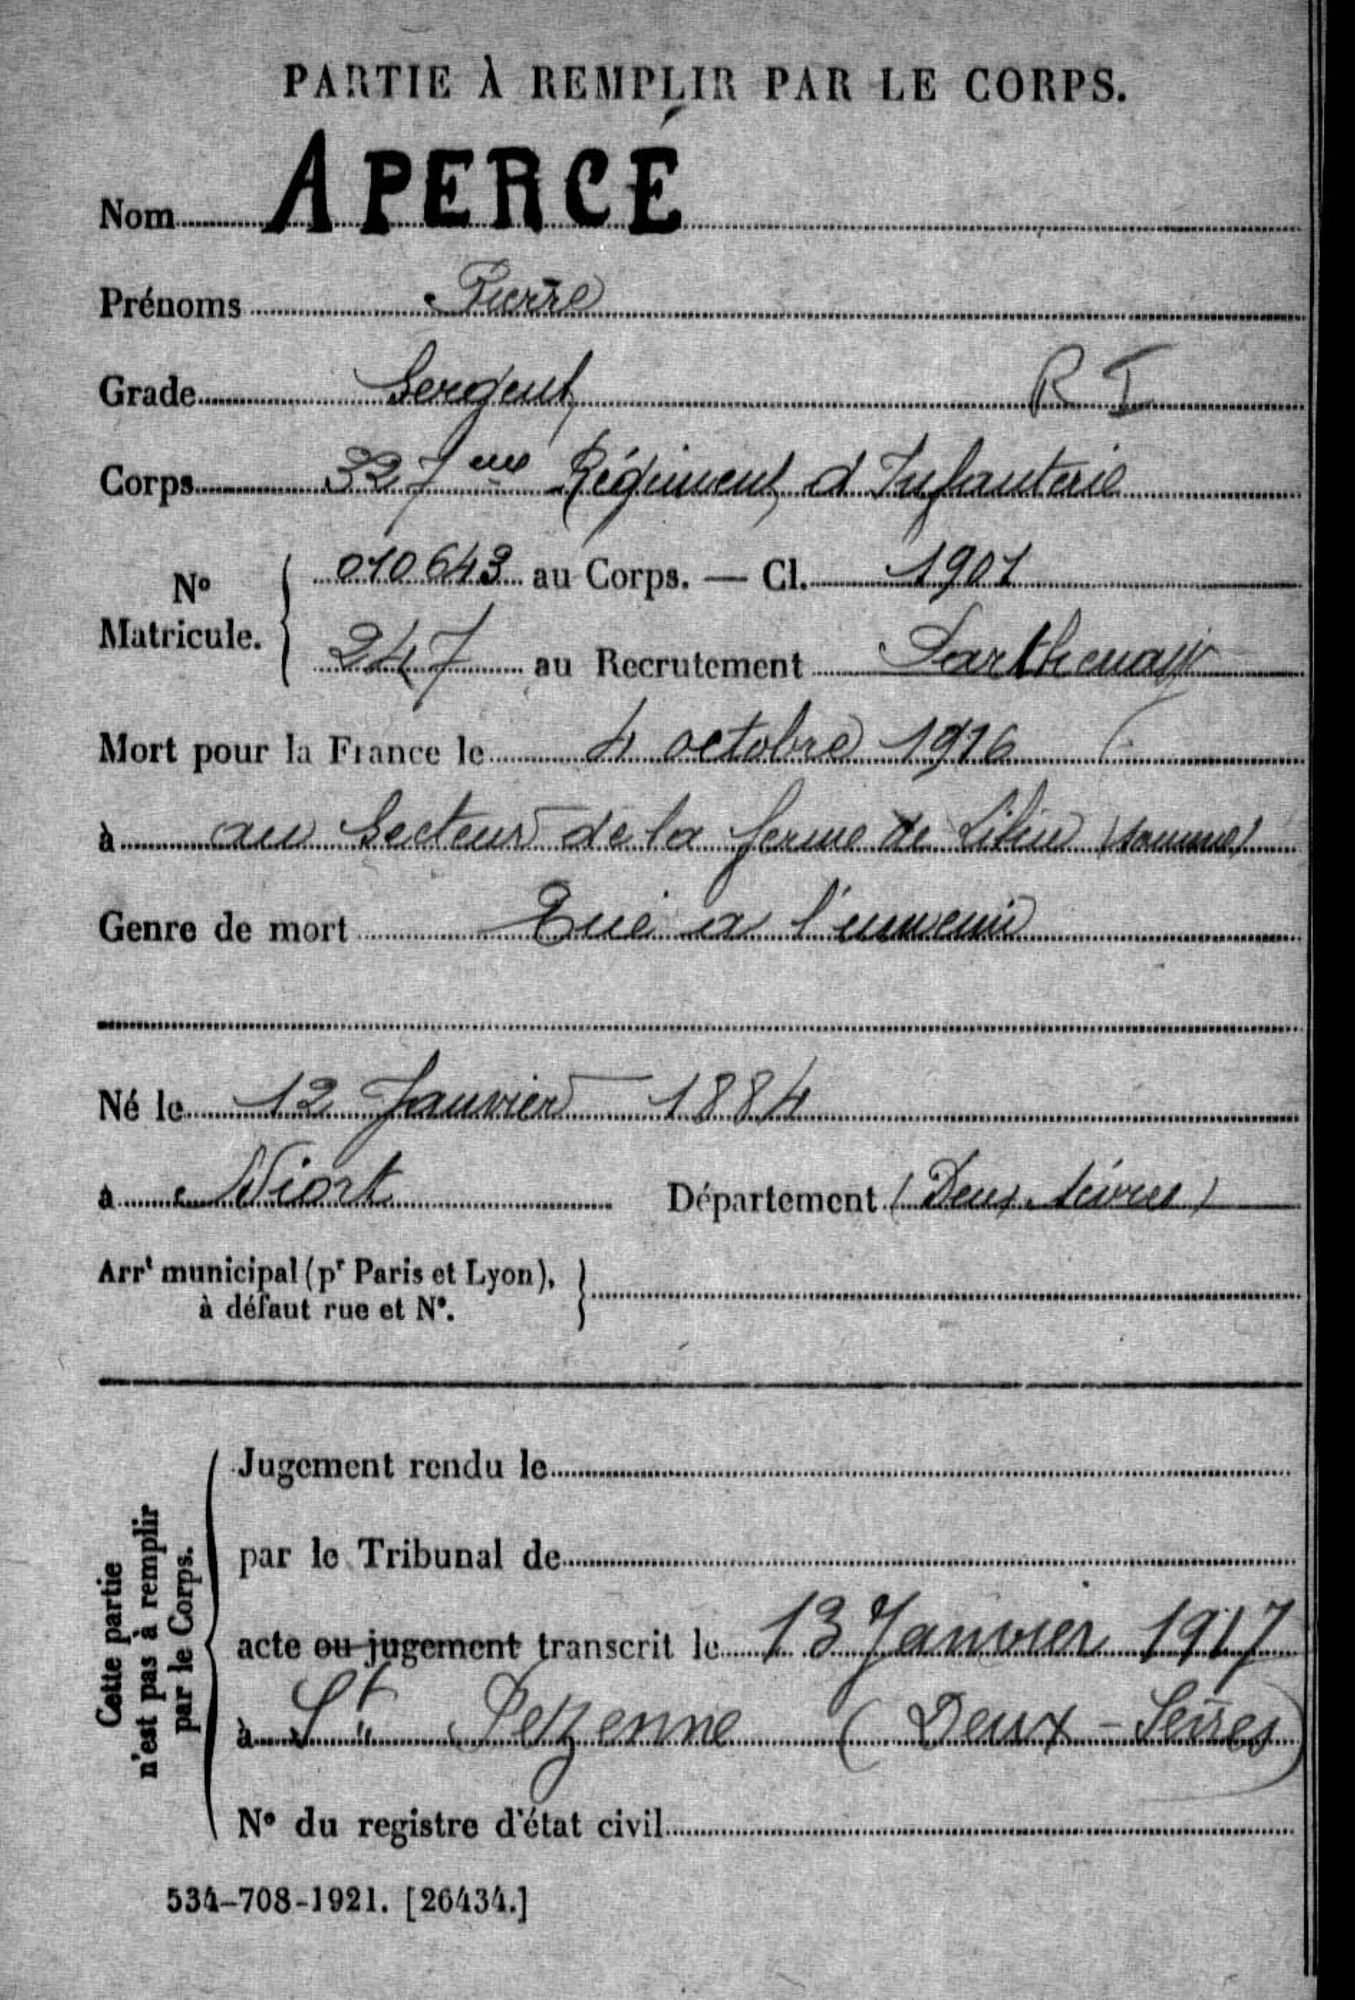 PARTIE À REMPLIR PAR LE CORPS.
Nom APERCÉ
Prénoms Pierre
Grade Sergent R I
Corps 327me Régiment d'Infanterie
No Matricule. { 010643 au Corps. — Cl. 1901
247 au Recrutement Parthenay
Mort pour la France le 4 octobre 1916
à au Secteur de la ferme de (Somme)
Genre de mort Tué a l'ennemi
Né le 12 Janvier 1884
à Niort Département (Deux Sèvres)
Arrt municipal (pr Paris et Lyon), }
à défaut rue et No.
Cette partie n'est pas à remplir par le Corps.
Jugement rendu le
par le Tribunal de
acte ou jugement transcrit le 13 Janvier 1917
à St Pezenne (Deux-Sèvres)
No du registre d'état civil
534-708-1921. [26434.]